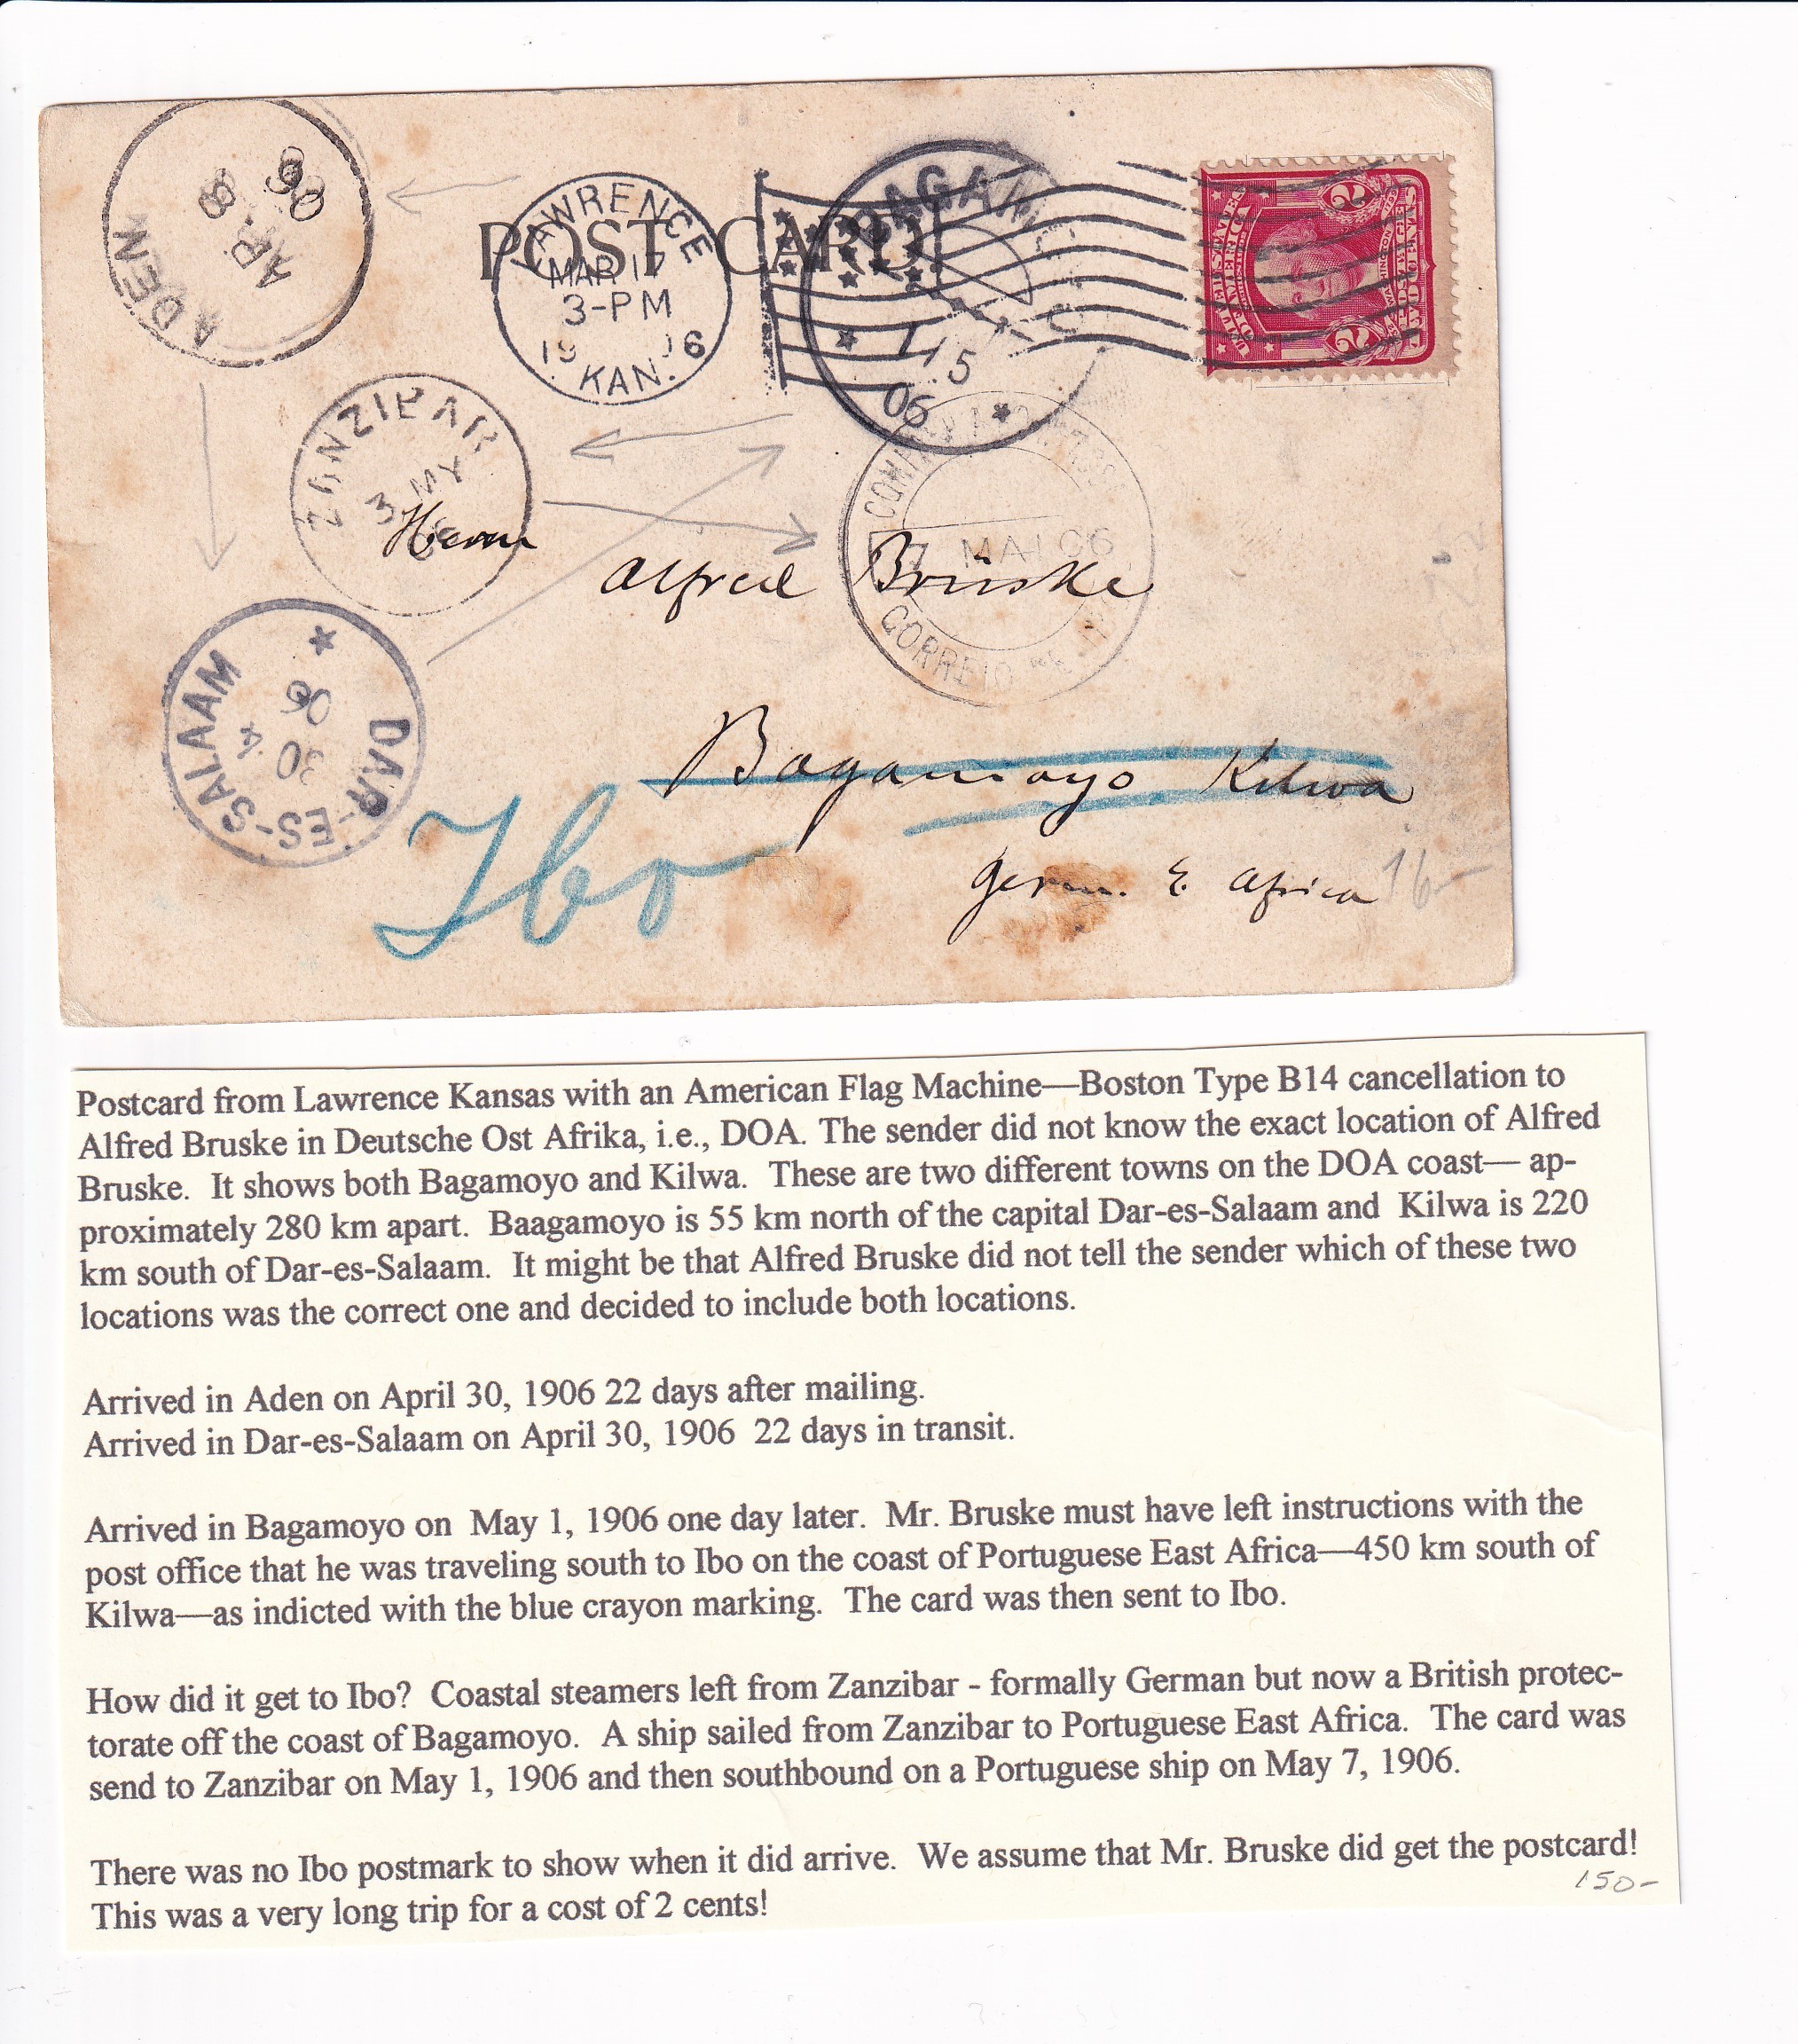 POST CARD.
ADEN
AP. 8
06
LAWRENCE
MAR 17
3-PM
19 06
KAN.
1 5
06
UNITED STATES OF AMERICA
WASHINGTON
TWO CENTS
2 2
ZANZIBAR
MY
3
MAI 06
CORREIO
Herrn
Alfred Brüske
DAR-ES-SALAAM
30 4
06
Bagamoyo Kilwa
Ibo
Germ. E. Africa
16-
Postcard from Lawrence Kansas with an American Flag Machine—Boston Type B14 cancellation to
Alfred Bruske in Deutsche Ost Afrika, i.e., DOA. The sender did not know the exact location of Alfred
Bruske. It shows both Bagamoyo and Kilwa. These are two different towns on the DOA coast— ap-
proximately 280 km apart. Baagamoyo is 55 km north of the capital Dar-es-Salaam and Kilwa is 220
km south of Dar-es-Salaam. It might be that Alfred Bruske did not tell the sender which of these two
locations was the correct one and decided to include both locations.
Arrived in Aden on April 30, 1906 22 days after mailing.
Arrived in Dar-es-Salaam on April 30, 1906 22 days in transit.
Arrived in Bagamoyo on May 1, 1906 one day later. Mr. Bruske must have left instructions with the
post office that he was traveling south to Ibo on the coast of Portuguese East Africa—450 km south of
Kilwa—as indicted with the blue crayon marking. The card was then sent to Ibo.
How did it get to Ibo? Coastal steamers left from Zanzibar - formally German but now a British protec-
torate off the coast of Bagamoyo. A ship sailed from Zanzibar to Portuguese East Africa. The card was
send to Zanzibar on May 1, 1906 and then southbound on a Portuguese ship on May 7, 1906.
There was no Ibo postmark to show when it did arrive. We assume that Mr. Bruske did get the postcard!
This was a very long trip for a cost of 2 cents!
150-